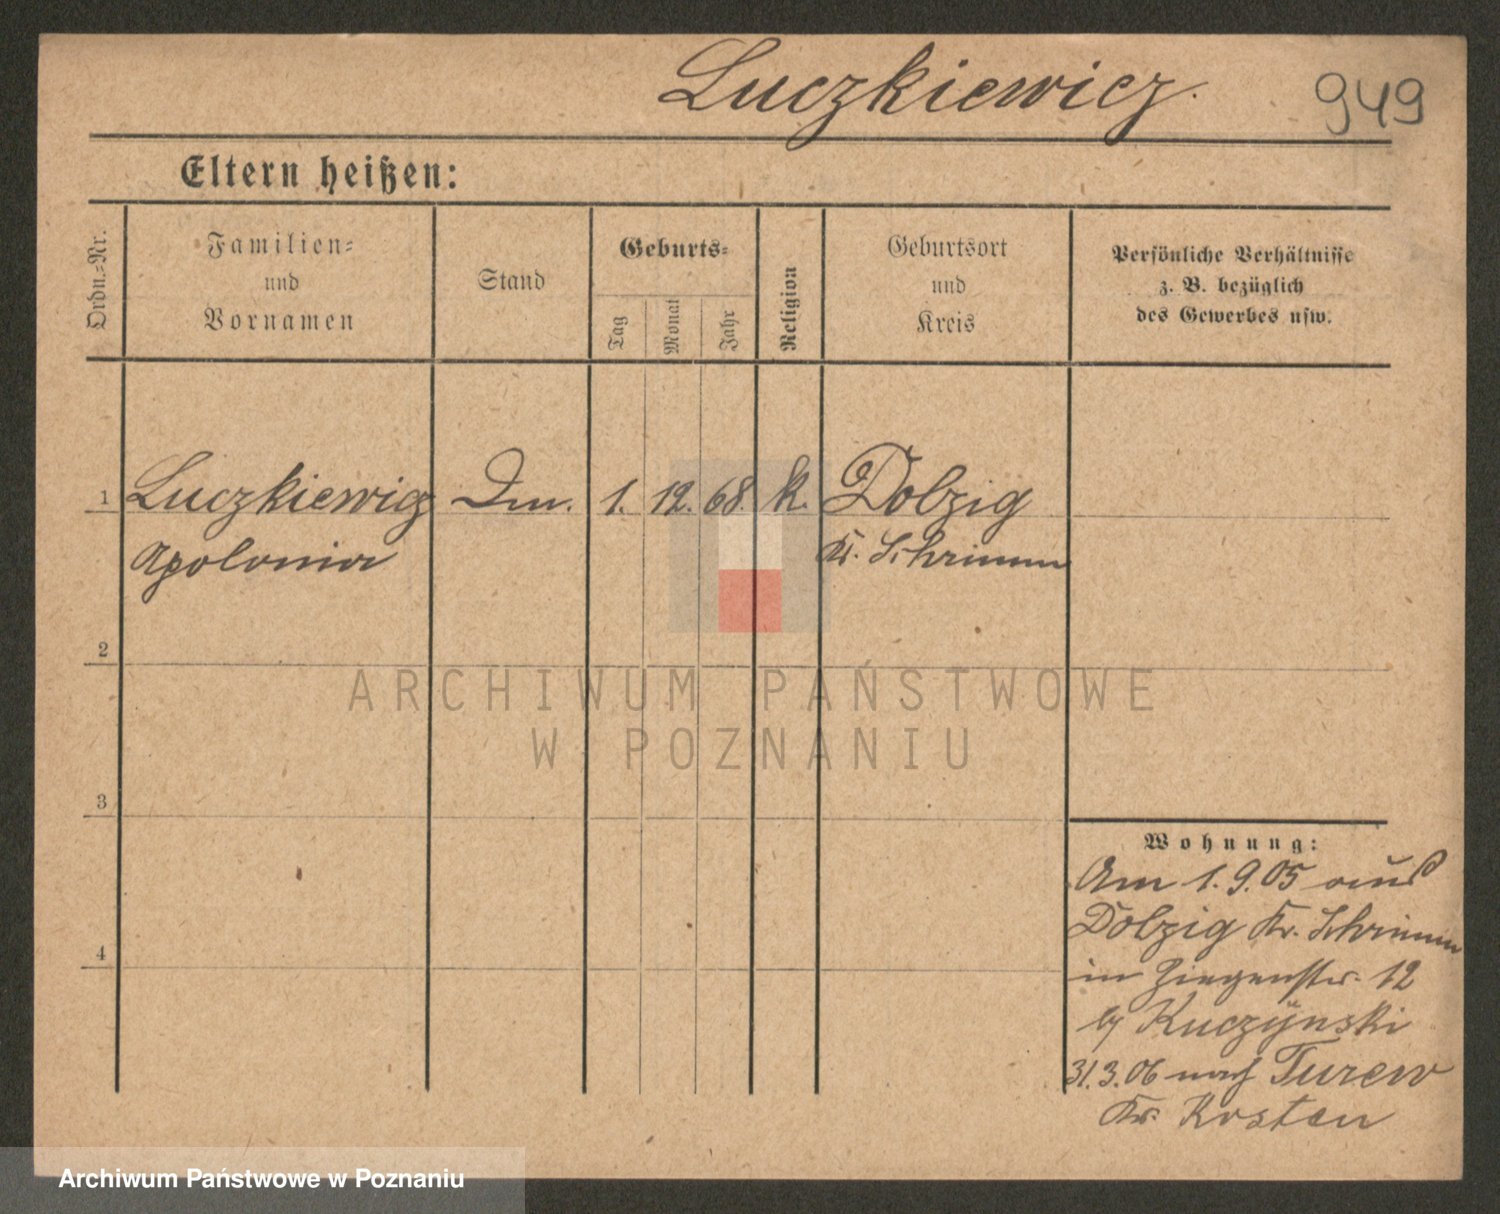 Luczkiewicz.
949
Eltern heißen:
Ordn.=Nr.
Familien=
und
Vornamen
Stand
Geburts=
Tag
Monat
Jahr
Religion
Geburtsort
und
Kreis
Persönliche Verhältnisse
z. B. bezüglich
des Gewerbes usw.
1 Luczkiewicz 1. 12. 68. k. Dolzig
Apolonia Kr. Schrimm
2
3
4
Wohnung:
Am 1.9.05 aus
Dolzig Kr. Schrimm
in Ziegenstr. 12
b/ Kuczynski
31.3.06 nach Turew
Kr. Kosten
ARCHIWUM PAŃSTWOWE
W POZNANIU
Archiwum Państwowe w Poznaniu